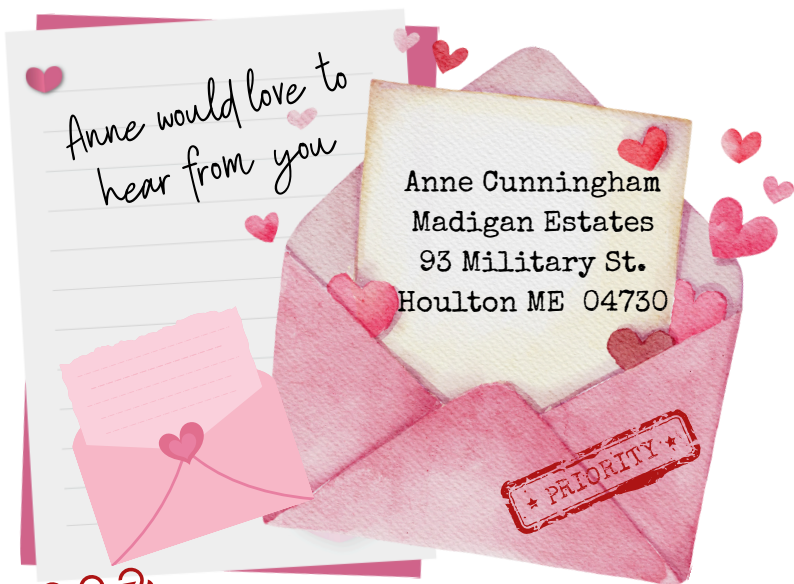 Anne would love to
hear from you
Anne Cunningham
Madigan Estates
93 Military St.
Houlton ME 04730
PRIORITY